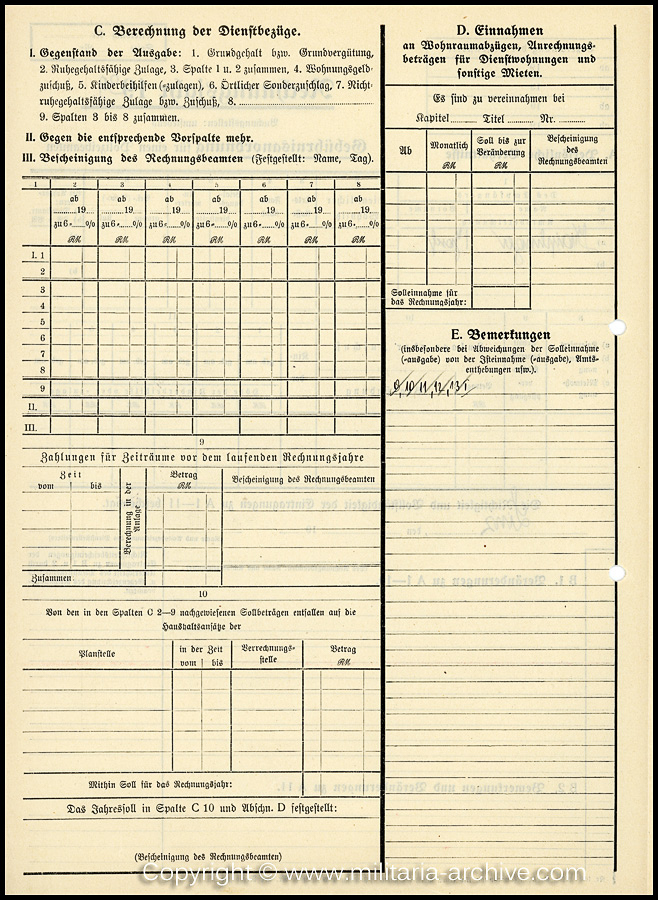 C. Berechnung der Dienstbezüge.
I. Gegenstand der Ausgabe: 1. Grundgehalt bzw. Grundvergütung,
2. Ruhegehaltsfähige Zulage, 3. Spalte 1 u. 2 zusammen, 4. Wohnungsgeld-
zuschuß, 5. Kinderbeihilfen (-zulagen), 6. Örtlicher Sonderzuschlag, 7. Nicht-
ruhegehaltsfähige Zulage bzw. Zuschuß, 8.
9. Spalten 3 bis 8 zusammen.
II. Gegen die entsprechende Vorspalte mehr.
III. Bescheinigung des Rechnungsbeamten (Festgestellt: Name, Tag).
1 2 3 4 5 6 7 8
ab ab ab ab ab ab ab
19 19 19 19 19 19 19
zu 6 % zu 6 % zu 6 % zu 6 % zu 6 % zu 6 % zu 6 %
RM RM RM RM RM RM RM
I. 1
2
3
4
5
6
7
8
9
II.
III.
9
Zahlungen für Zeiträume vor dem laufenden Rechnungsjahre
Zeit
vom bis
Berechnung in der Anlage
Betrag
RM
Bescheinigung des Rechnungsbeamten
Zusammen
10
Von den in den Spalten C 2—9 nachgewiesenen Sollbeträgen entfallen auf die
Haushaltsansätze der
Planstelle
in der Zeit
vom bis
Verrechnungs-
stelle
Betrag
RM
Mithin Soll für das Rechnungsjahr:
Das Jahressoll in Spalte C 10 und Abschn. D festgestellt:
(Bescheinigung des Rechnungsbeamten)
D. Einnahmen
an Wohnraumabzügen, Anrechnungs-
beträgen für Dienstwohnungen und
sonstige Mieten.
Es sind zu vereinnahmen bei
Kapitel Titel Nr.
Ab
Monatlich
RM
Soll bis zur
Veränderung
RM
Bescheinigung
des
Rechnungsbeamten
Solleinnahme für
das Rechnungsjahr:
E. Bemerkungen
(insbesondere bei Abweichungen der Solleinnahme
(-ausgabe) von der Isteinnahme (-ausgabe), Amts-
enthebungen usw.).
Copyright © www.militaria-archive.com